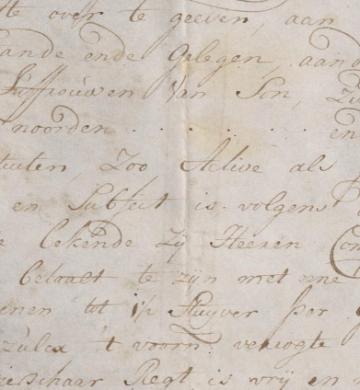 te over te geeven, aan
ande ende Gelegen, aan
Juffrouwen Van Son, Z
noorden . . . . . . . en
Zoo Active als
en Subject is volgens
bekende Zij Heeren Con
belast te zijn met
enen tot Stuyver per
zulex 't voorn: verzogte
ierschaar Regt is vrij en